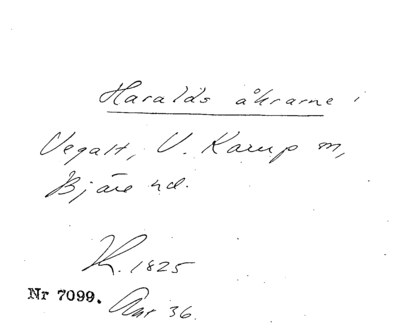 Haralds åkrarne i
Vegalt, V. Karup sn,
Bjäre hd.
K. 1825
Nr 7099.
Akt 36.